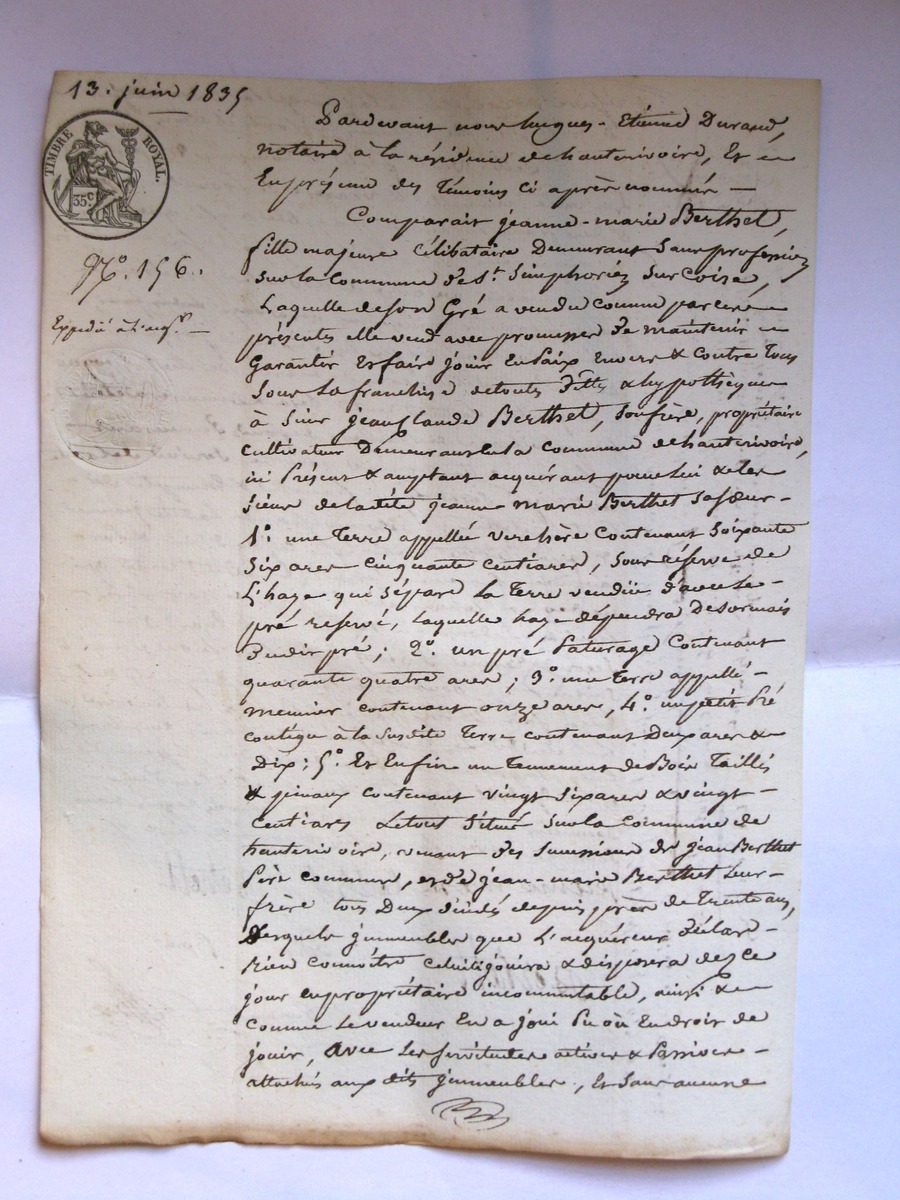 13. juin 1835
TIMBRE ROYAL.
35c.
N.º 156.
Expédié à l'acq.r —
Pardevant nous hugues - Etienne Durand,
notaire à la résidence de hauterivoire, Et en
En présence des Témoins ci après nommés —
Comparait jeanne-marie Berthet,
fille majeure Célibataire Demeurant Sans profession
sur la Commune de St. Simphorien Sur Coise,
Laquelle de son Gré a vendu comme par ces
présentes elle vend avec promesse de maintenir
Garantir Et faire jouir En Paix Envers & Contre Tous
Sous la franchise de touts dettes & hypothèques
à Sieur jean Claude Berthet, Son frère, propriétaire
cultivateur Demeurant Sur la Commune de hauterivoire,
ici Présent & acceptant acquérant pour Lui & les
Siens de la dite jeanne marie Berthet Sa Sœur -
1º. une Terre appellée verchère Contenant Soixante
Six ares Cinquante Centiares, Sous réserve de
L'haye qui sépare La Terre vendue d'avec le -
pré reservé, laquelle haye dépendra Desormais
Dudit pré; 2º. un pré Paturage Contenant
quarante quatre ares; 3º. une Terre appellé -
meunier contenant onze ares, 4º. un petit Pré
contigu à la Susdite Terre contenant Deux ares &
Dix; 5º. Et Enfin un Tennement de Bois Taillis
& pinaux contenant vingt Six ares & vingt -
Centiares Le tout Situé Sur la Commune de
hauterivoire, venant des Successions de jean Berthet
Père commun, et de jean-marie Berthet Leur
frère tous Deux décédés depuis près de Trente ans,
Desquels jmmeubles que L'acquéreur déclare -
Bien connoître celui ci jouira & disposera dez ce
jour en propriétaire incommutable, ainsi &
Comme Le vendeur En a joui Pu où En droit de
jouir, avec Les Servitudes actives & Passives -
attachés aux dits jmmeubles, Et Sans aucune